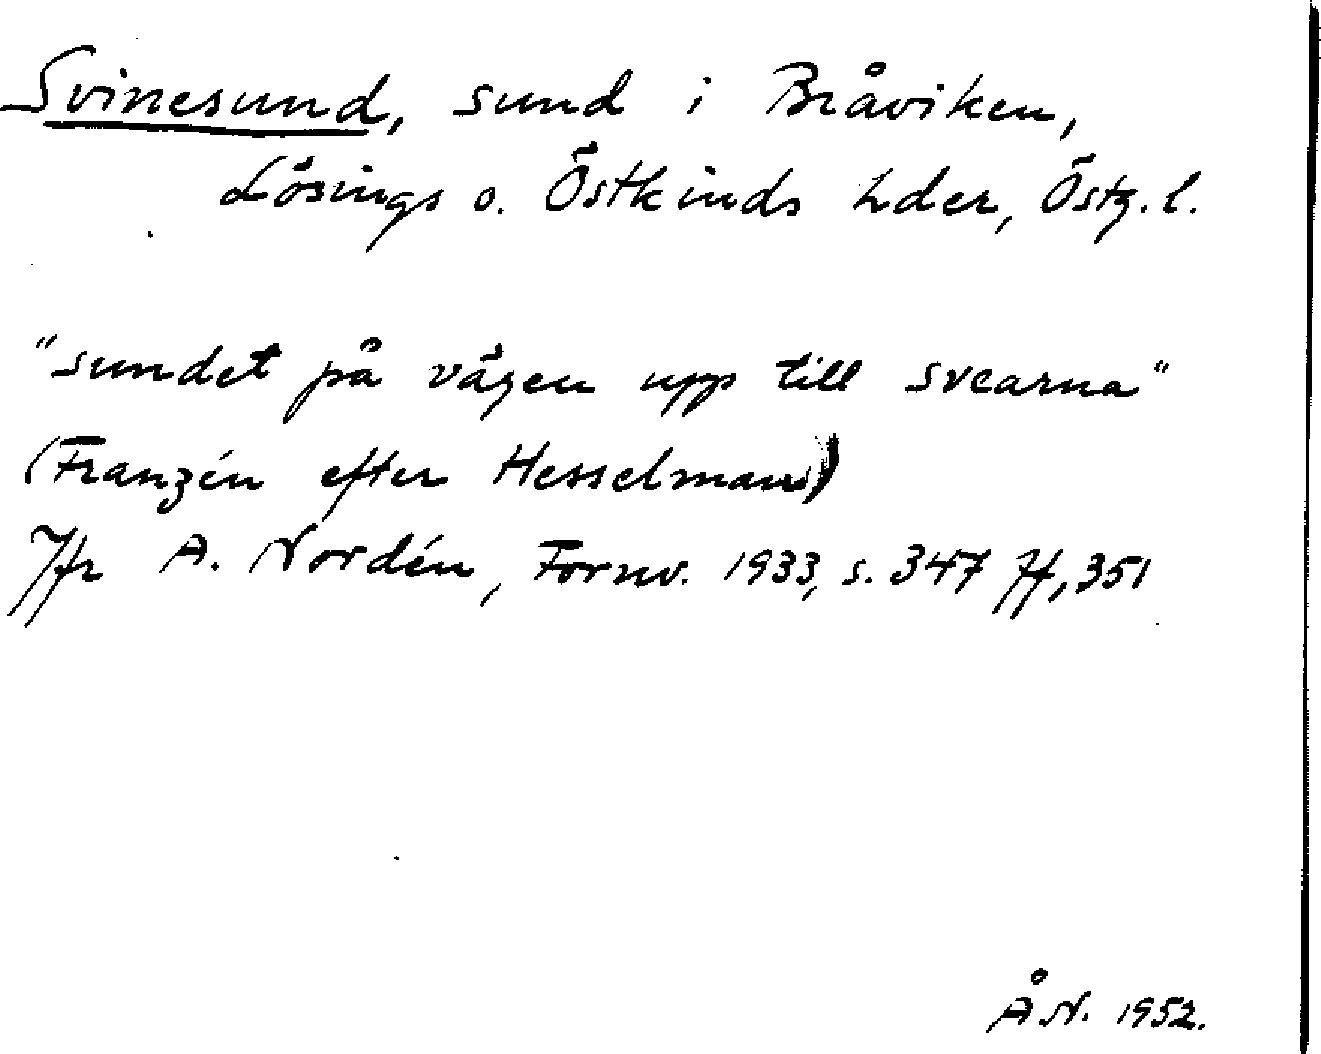 Svinesund, sund i Bråviken,
Lösings o. Östkinds hder, Östg. l.
"sundet på vägen upp till svearna"
(Franzén efter Hesselman)
Jfr A. Nordén, Fornv. 1933, s. 347 ff, 351
Å N. 1952.